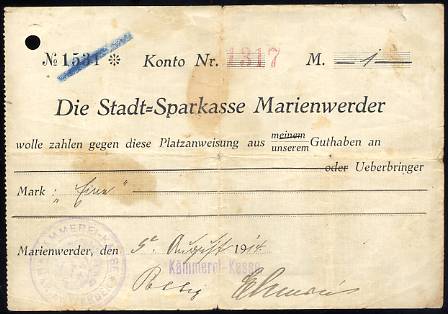 № 1531 * Konto Nr. 1317 M. 1
Die Stadt=Sparkasse Marienwerder
wolle zahlen gegen diese Platzanweisung aus meinem unserem Guthaben an
oder Ueberbringer
Mark: "Eine"
Marienwerder, den 5. August 1914
Kämmerei-Kasse
KÄMMEREI-KASSE